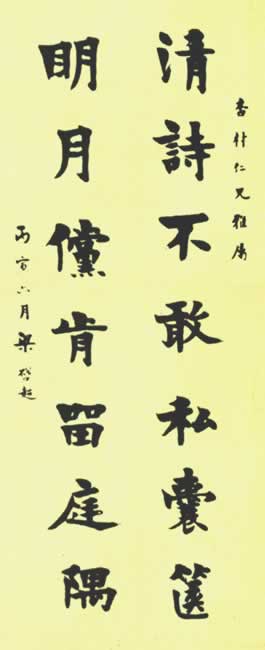 香材仁兄雅属
清詩不敢私囊箧
明月儻肯畱庭隅
丙寅六月梁啓超